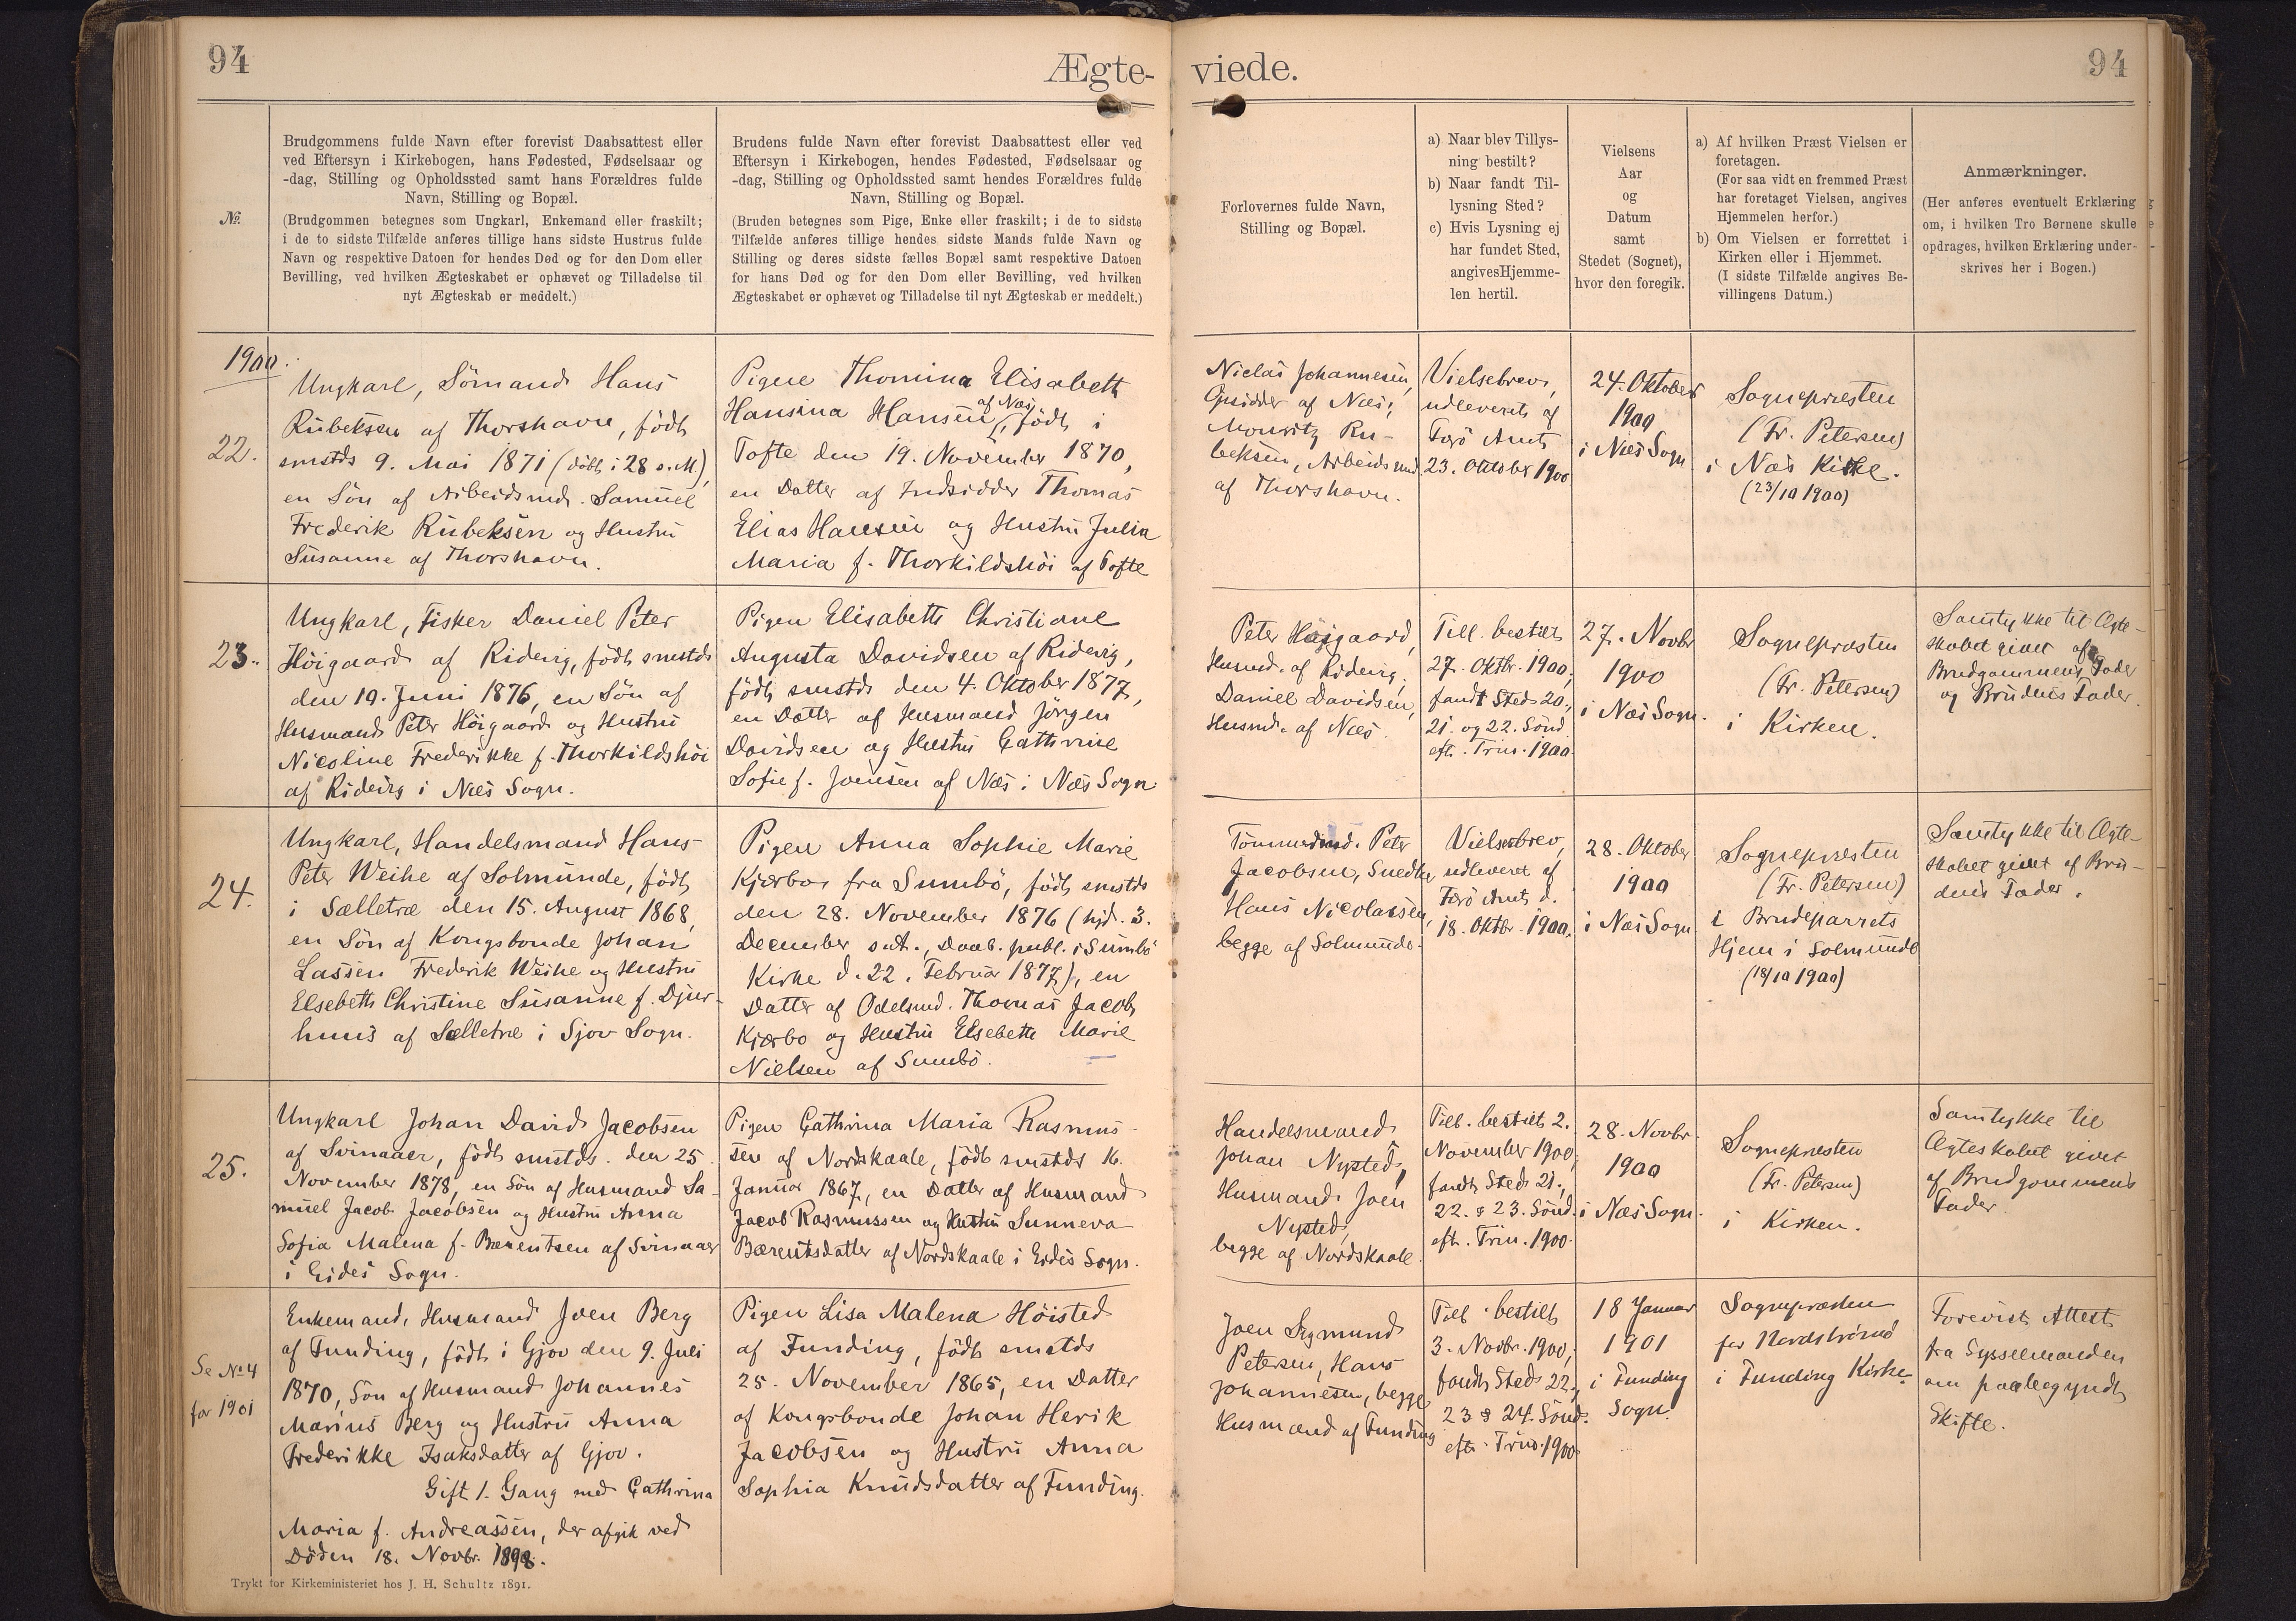 94
Ægte-
viede.
94
№.
Brudgommens fulde Navn efter forevist Daabsattest eller
ved Eftersyn i Kirkebogen, hans Fødested, Fødselsaar og
-dag, Stilling og Opholdssted samt hans Forældres fulde
Navn, Stilling og Bopæl.
(Brudgommen betegnes som Ungkarl, Enkemand eller fraskilt;
i de to sidste Tilfælde anføres tillige hans sidste Hustrus fulde
Navn og respektive Datoen for hendes Død og for den Dom eller
Bevilling, ved hvilken Ægteskabet er ophævet og Tilladelse til
nyt Ægteskab er meddelt.)
Brudens fulde Navn efter forevist Daabsattest eller ved
Eftersyn i Kirkebogen, hendes Fødested, Fødselsaar og
-dag, Stilling og Opholdssted samt hendes Forældres fulde
Navn, Stilling og Bopæl.
(Bruden betegnes som Pige, Enke eller fraskilt; i de to sidste
Tilfælde anføres tillige hendes sidste Mands fulde Navn og
Stilling og deres sidste fælles Bopæl samt respektive Datoen
for hans Død og for den Dom eller Bevilling, ved hvilken
Ægteskabet er ophævet og Tilladelse til nyt Ægteskab er meddelt.)
Forlovernes fulde Navn,
Stilling og Bopæl.
a) Naar blev Tillys-
ning bestilt?
b) Naar fandt Til-
lysning Sted?
c) Hvis Lysning ej
har fundet Sted,
angives Hjemme-
len hertil.
Vielsens
Aar
og
Datum
samt
Stedet (Sognet),
hvor den foregik.
a) Af hvilken Præst Vielsen er
foretagen.
(For saa vidt en fremmed Præst
har foretaget Vielsen, angives
Hjemmelen herfor.)
b) Om Vielsen er forrettet i
Kirken eller i Hjemmet.
(I sidste Tilfælde angives Be-
villingens Datum.)
Anmærkninger.
(Her anføres eventuelt Erklæring
om, i hvilken Tro Børnene skulle
opdrages, hvilken Erklæring under-
skrives her i Bogen.)
1900.
22.
Ungkarl, Sömand Hans
Rubeksen af Thorshavn, födt
smstds 9. Mai 1871 (döbt i 28 s. M),
en Sön af Arbeidsmd. Samuel
Frederik Rubeksen og Hustru
Susanne af Thorshavn.
Pigen Thomina Elisabeth
Hansina Hansen af Næs, födt i
Tofte den 19. November 1870,
en Datter af Indsidder Thomas
Elias Hansen og Hustru Julia
Maria f. Thorkildshöi af Tofte
Niclas Johannesen,
Opsidder af Næs;
Mouritz Ru-
beksen, Arbeidsmd
af Thorshavn.
Vielsebrev,
udleveret af
Færö Amt
23. Oktober 1900
24. Oktober
1900
i Næs Sogn
Sognepræsten
(Fr. Petersen)
i Næs Kirke.
(23/10 1900)
23.
Ungkarl, Fisker Daniel Peter
Höigaard af Ridevig, födt smstds
den 10. Juni 1876, en Sön af
Husmand Peter Höigaard og Hustru
Nicoline Frederikke f. Thorkildshöi
af Ridevig i Næs Sogn.
Pigen Elisabeth Christiane
Augusta Davidsen af Ridevig,
födt smstds den 4. Oktober 1877,
en Datter af Husmand Jörgen
Davidsen og Hustru Cathrine
Sofie f. Joensen af Næs i Næs Sogn
Peter Höigaard,
Husmd. af Ridevig,
Daniel Davidsen,
Husmd. af Næs.
Till. bestilt
27. Oktbr. 1900,
fandt Sted 20.,
21. og 22. Sönd.
eft. Trin. 1900.
27. Novbr
1900
i Næs Sogn.
Sognepræsten
(Fr. Petersen)
i Kirken.
Samtykke til Ægte-
skabet givet af
Brudgommens Fader
og Brudens Fader.
24.
Ungkarl, Handelsmand Hans
Peter Weihe af Solmunde, födt
i Sælletræ den 15. August 1868,
en Sön af Kongsbonde Johan
Lassen Frederik Weihe og Hustru
Elsebeth Christine Susanne f. Djur-
huus af Sælletræ i Sjov Sogn.
Pigen Anna Sophie Marie
Kjærbo fra Sumbö, födt smstds
den 28. November 1876 (hjd. 3.
December s.A., Daab. publ. i Sumbö
Kirke d. 22. Februar 1877), en
Datter af Odelsmd. Thomas Jacob
Kjærbo og Hustru Elsebeth Marie
Nielsen af Sumbö.
Tömmermd. Peter
Jacobsen, Snedker
Hans Nicolassen,
begge af Solmunde.
Vielsebrev,
udleveret af
Færö Amt d.
18. Oktbr. 1900.
28. Oktober
1900
i Næs Sogn
Sognepræsten
(Fr. Petersen)
i Brudeparrets
Hjem i Solmunde
(18/10 1900)
Samtykke til Ægte-
skabet givet af Bru-
dens Fader.
25.
Ungkarl Johan David Jacobsen
af Svinaaer, födt smstds. den 25.
November 1878, en Sön af Husmand Sa-
muel Jacob Jacobsen og Hustru Anna
Sofia Malena f. Bærentsen af Svinaaer
i Eides Sogn.
Pigen Cathrina Maria Rasmus-
sen af Nordskaale, födt smstds 16.
Januar 1867, en Datter af Husmand
Jacob Rasmussen og Hustru Sunneva
Bærentsdatter af Nordskaale i Eides Sogn.
Handelsmand
Johan Nysted,
Husmand Joen
Nysted,
begge af Nordskaale.
Till. bestilt 2.
November 1900,
fandt Sted 21.,
22. & 23. Sönd.
eft. Trin. 1900.
28. Novbr.
1900
i Næs Sogn.
Sognepræsten
(Fr. Petersen)
i Kirken.
Samtykke til
Ægteskabet givet
af Brudgommens
Fader.
Se No 4
for 1901
Enkemand, Husmand Joen Berg
af Funding, födt i Gjov den 9. Juli
1870, Sön af Husmand Johannes
Marius Berg og Hustru Anna
Frederikke Isaksdatter af Gjov.
Gift 1. Gang med Cathrina
Maria f. Andreassen, der afgik ved
Döden 18. Novbr. 1898.
Pigen Lisa Malena Höisted
af Funding, födt smstds
25. November 1865, en Datter
af Kongsbonde Johan Herik
Jacobsen og Hustru Anna
Sophia Knudsdatter af Funding.
Joen Sigmund
Petersen, Hans
Johannesen, begge
Husmænd af Funding
Till. bestilt
3. Novbr. 1900,
fandt Sted 22.,
23 & 24. Sönd.
eft. Trin. 1900
18 Januar
1901
i Funding
Sogn.
Sognepræsten
for Nordströmö
i Funding Kirke
Forevist Attest
fra Sysselmanden
om paabegyndt
Skifte.
Trykt for Kirkeministeriet hos J. H. Schultz 1891.